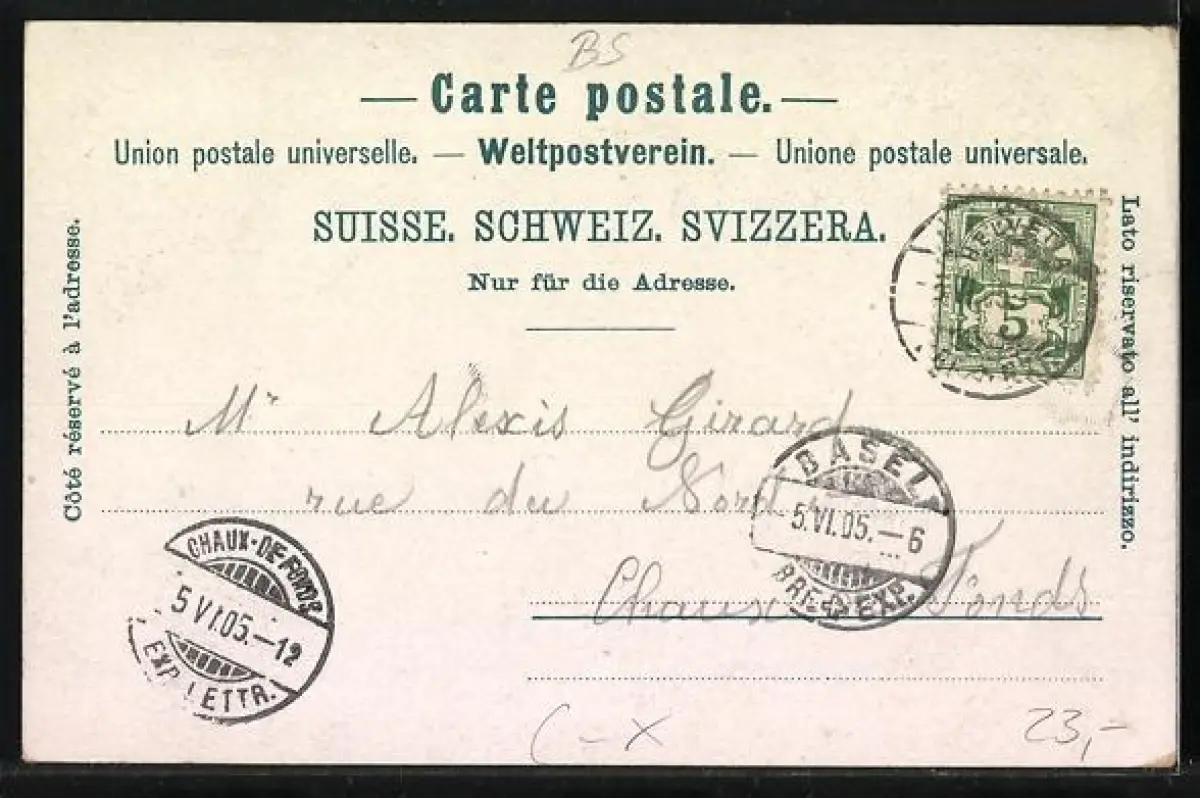 BS
— Carte postale. —
Union postale universelle. — Weltpostverein. — Unione postale universale.
SUISSE. SCHWEIZ. SVIZZERA.
Nur für die Adresse.
Côté réservé à l'adresse.
Lato riservato all' indirizzo.
HELVETIA
5
Mr Alexis Girard
rue du Nord
Chaux Fonds
BASEL
5.VI.05.–6
BRF. EXP.
CHAUX-DE-FONDS
5 VI.05.–12
EXP. LETTR.
(–X
23,-